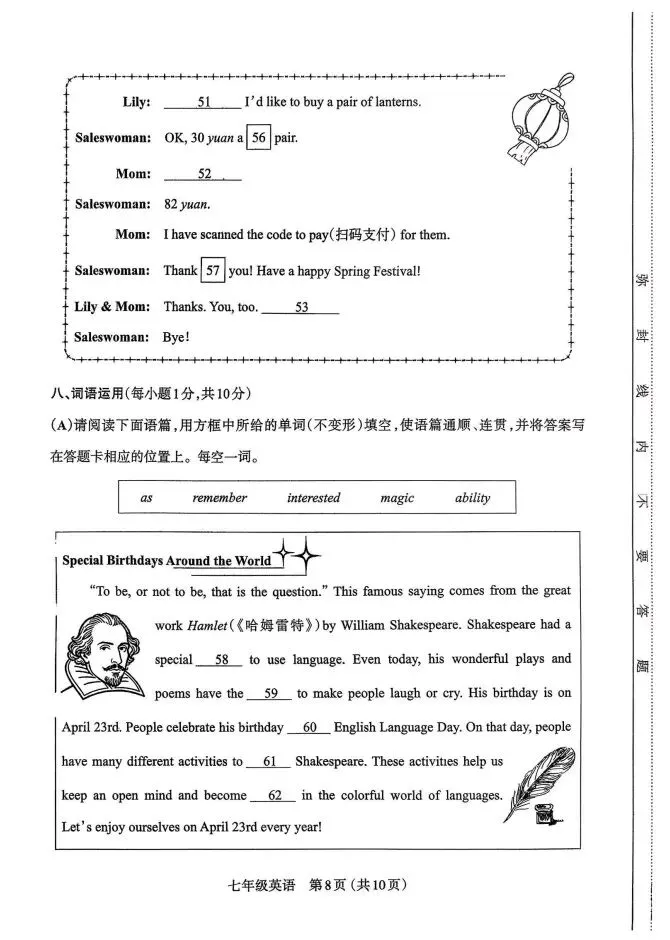 Lily: 51 I'd like to buy a pair of lanterns.
Saleswoman: OK, 30 yuan a 56 pair.
Mom: 52
Saleswoman: 82 yuan.
Mom: I have scanned the code to pay(扫码支付) for them.
Saleswoman: Thank 57 you! Have a happy Spring Festival!
Lily & Mom: Thanks. You, too. 53
Saleswoman: Bye!
八、词语运用(每小题1分,共10分)
(A)请阅读下面语篇,用方框中所给的单词(不变形)填空,使语篇通顺、连贯,并将答案写
在答题卡相应的位置上。每空一词。
as remember interested magic ability
Special Birthdays Around the World
“To be, or not to be, that is the question.” This famous saying comes from the great
work Hamlet(《哈姆雷特》)by William Shakespeare. Shakespeare had a
special 58 to use language. Even today, his wonderful plays and
poems have the 59 to make people laugh or cry. His birthday is on
April 23rd. People celebrate his birthday 60 English Language Day. On that day, people
have many different activities to 61 Shakespeare. These activities help us
keep an open mind and become 62 in the colorful world of languages.
Let's enjoy ourselves on April 23rd every year!
七年级英语 第8页(共10页)
弥封线内不要答题